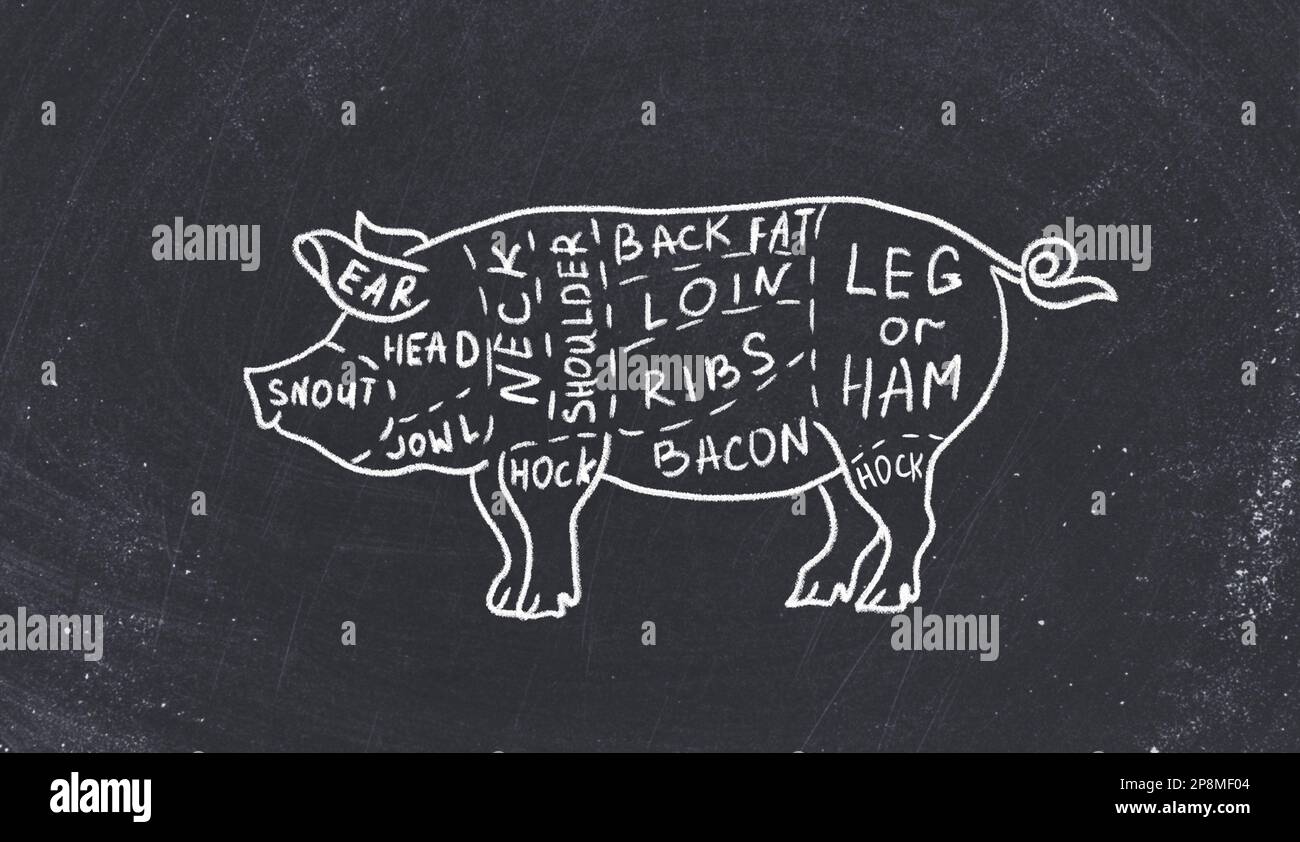 EAR
HEAD
SNOUT
JOWL
NECK
SHOULDER
HOCK
BACK FAT
LOIN
RIBS
BACON
LEG
or
HAM
HOCK
a
a
a
a
a
alamy
alamy
alamy
a
a
a
a
alamy
alamy
a
a
a
alamy
Image ID: 2P8MF04
www.alamy.com